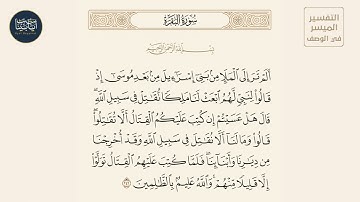 التفسير
الميسر
في الوصف
سورة البقرة
بسم الله الرحمن الرحيم
ألم تر إلى الملإ من بني إسرءيل من بعد موسى إذ
قالوا لنبي لهم ابعث لنا ملكا نقتل في سبيل الله
قال هل عسيتم إن كتب عليكم القتال ألا تقتلوا
قالوا وما لنا ألا نقتل في سبيل الله وقد أخرجنا
من ديرنا وأبنائنا فلما كتب عليهم القتال تولوا
إلا قليلا منهم والله عليم بالظلمين